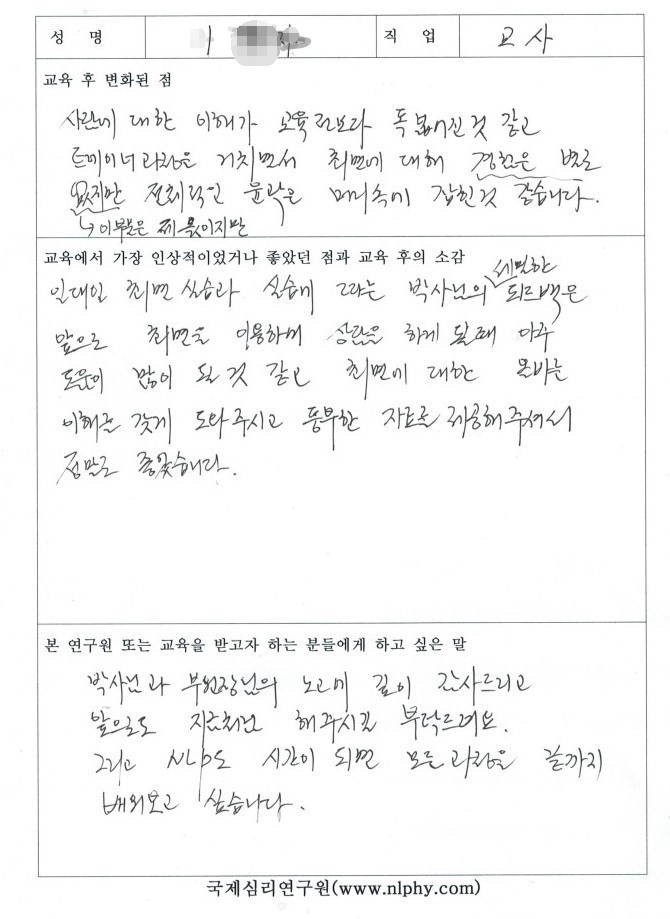 성 명
직 업 교사
교육 후 변화된 점
사람에 대한 이해가 교육 전보다 폭 넓어진것 같고
트레이너과정은 거치면서 최면에 대해 경험은 별로
없지만 전체적인 윤곽은 머리속에 잡힌것 같습니다.
↳이부분은 제 몫이지만
교육에서 가장 인상적이었거나 좋았던 점과 교육 후의 소감
세밀한
일대일 최면실습과 실습에 따른 박사님의 피드백은
앞으로 최면을 이용하며 상담을 하게 될때 아주
도움이 많이 될 것 같고 최면에 대한 올바른
이해를 갖게 도와주시고 풍부한 자료를 제공해주셔서
정말로 좋았습니다.
본 연구원 또는 교육을 받고자 하는 분들에게 하고 싶은 말
박사님과 부원장님의 노고에 깊이 감사드리고
앞으로도 지금처럼 해주시길 부탁드려요.
그리고 NLP도 시간이 되면 모든과정을 끝까지
배워보고 싶습니다.
국제심리연구원(www.nlphy.com)